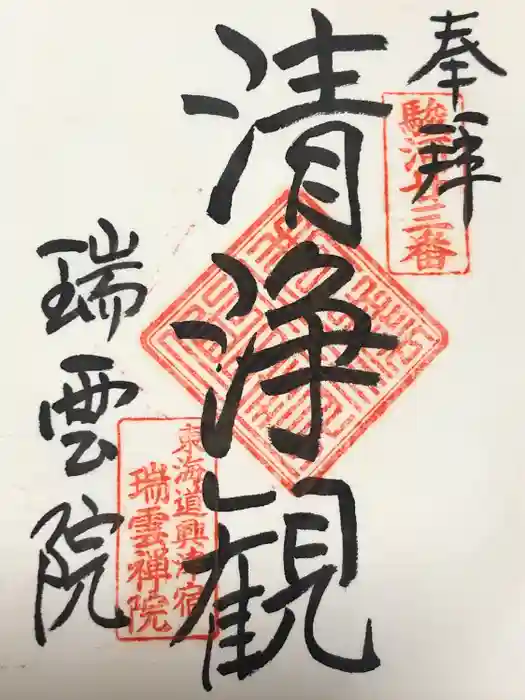 奉拝
駿河廿三番
清浄観
瑞雲院
東海道興津宿
瑞雲禅院